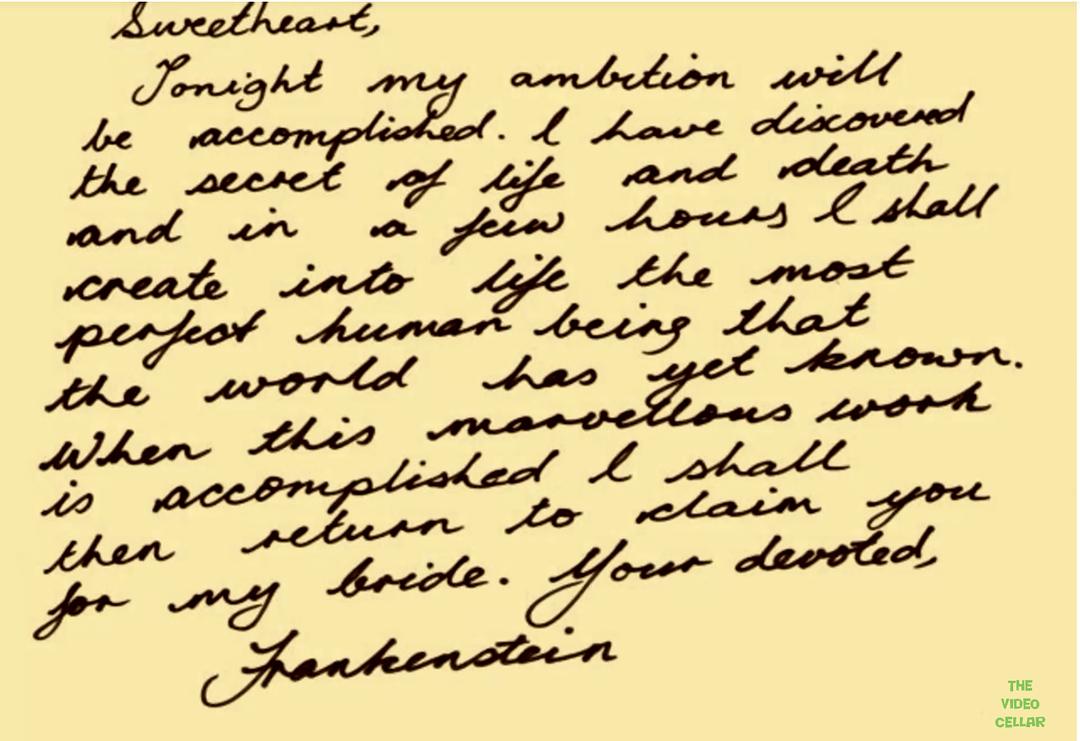 Sweetheart,
Tonight my ambition will
be accomplished. I have discovered
the secret of life and death
and in a few hours I shall
create into life the most
perfect human being that
the world has yet known.
When this marvellous work
is accomplished I shall
then return to claim you
for my bride. Your devoted,
Frankenstein
THE
VIDEO
CELLAR